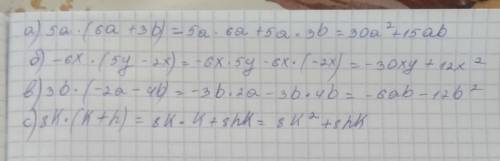 а) 5a · (6a + 3b) = 5a · 6a + 5a · 3b = 30a² + 15ab
б) -6x · (5y - 2x) = -6x · 5y - 6x · (-2x) = -30xy + 12x²
в) 3b · (-2a - 4b) = -3b · 2a - 3b · 4b = -6ab - 12b²
с) 8K · (K + h) = 8K · K + 8hK = 8K² + 8hK